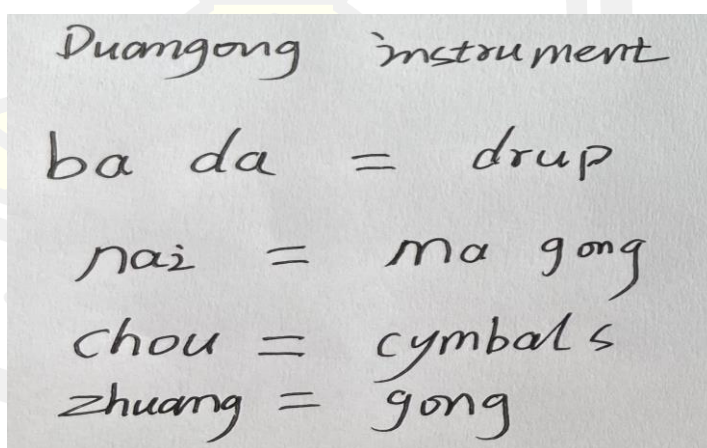 Duangong instrument
ba da = drup
nai = ma gong
chou = cymbals
zhuang = gong